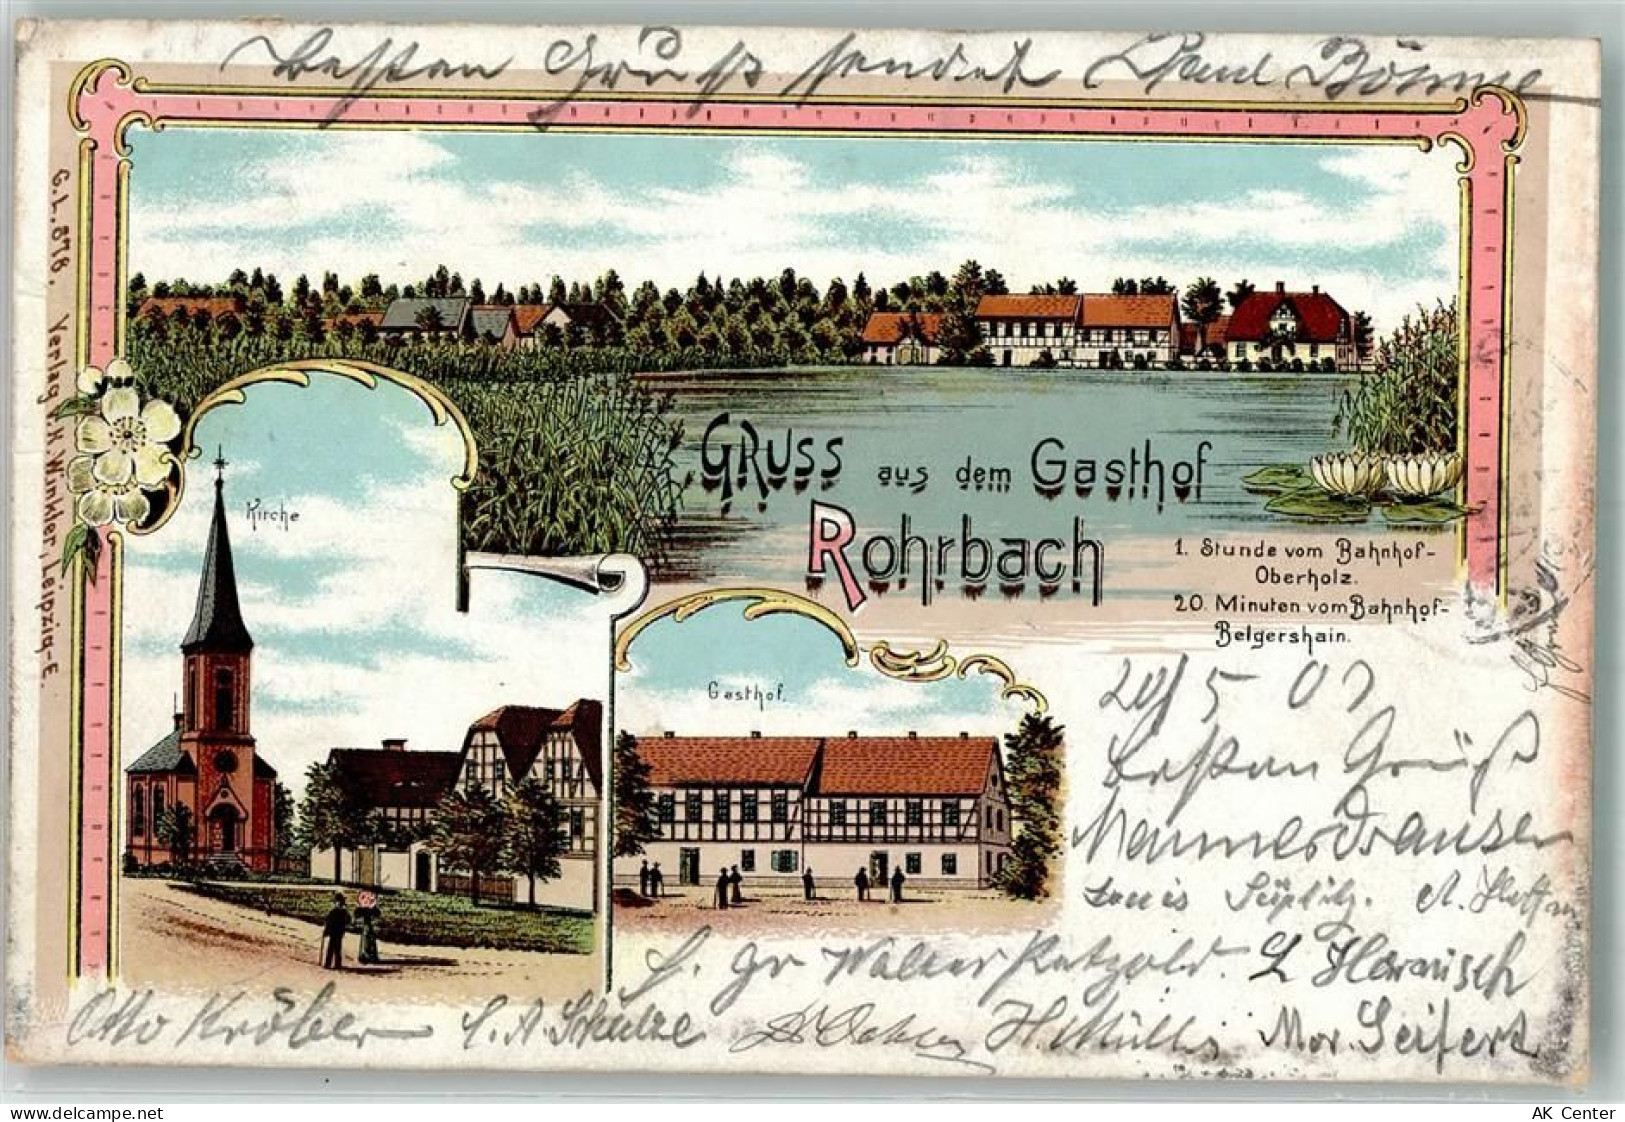 Besten Gruß sendet Paul Böhme
G.L. 878. Verlag v. K. Winkler, Leipzig-E.
Kirche
GRUSS aus dem Gasthof
Rohrbach
1. Stunde vom Bahnhof-
Oberholz.
20. Minuten vom Bahnhof-
Belgershain.
Gasthof.
20/5 07
Besten Gruß
Louis
H. Gr Walter Petzold. L Harnisch
Otto Kröber F. A. Schulze H. Müller Mor. Seifert
delcampe.net
AK Center